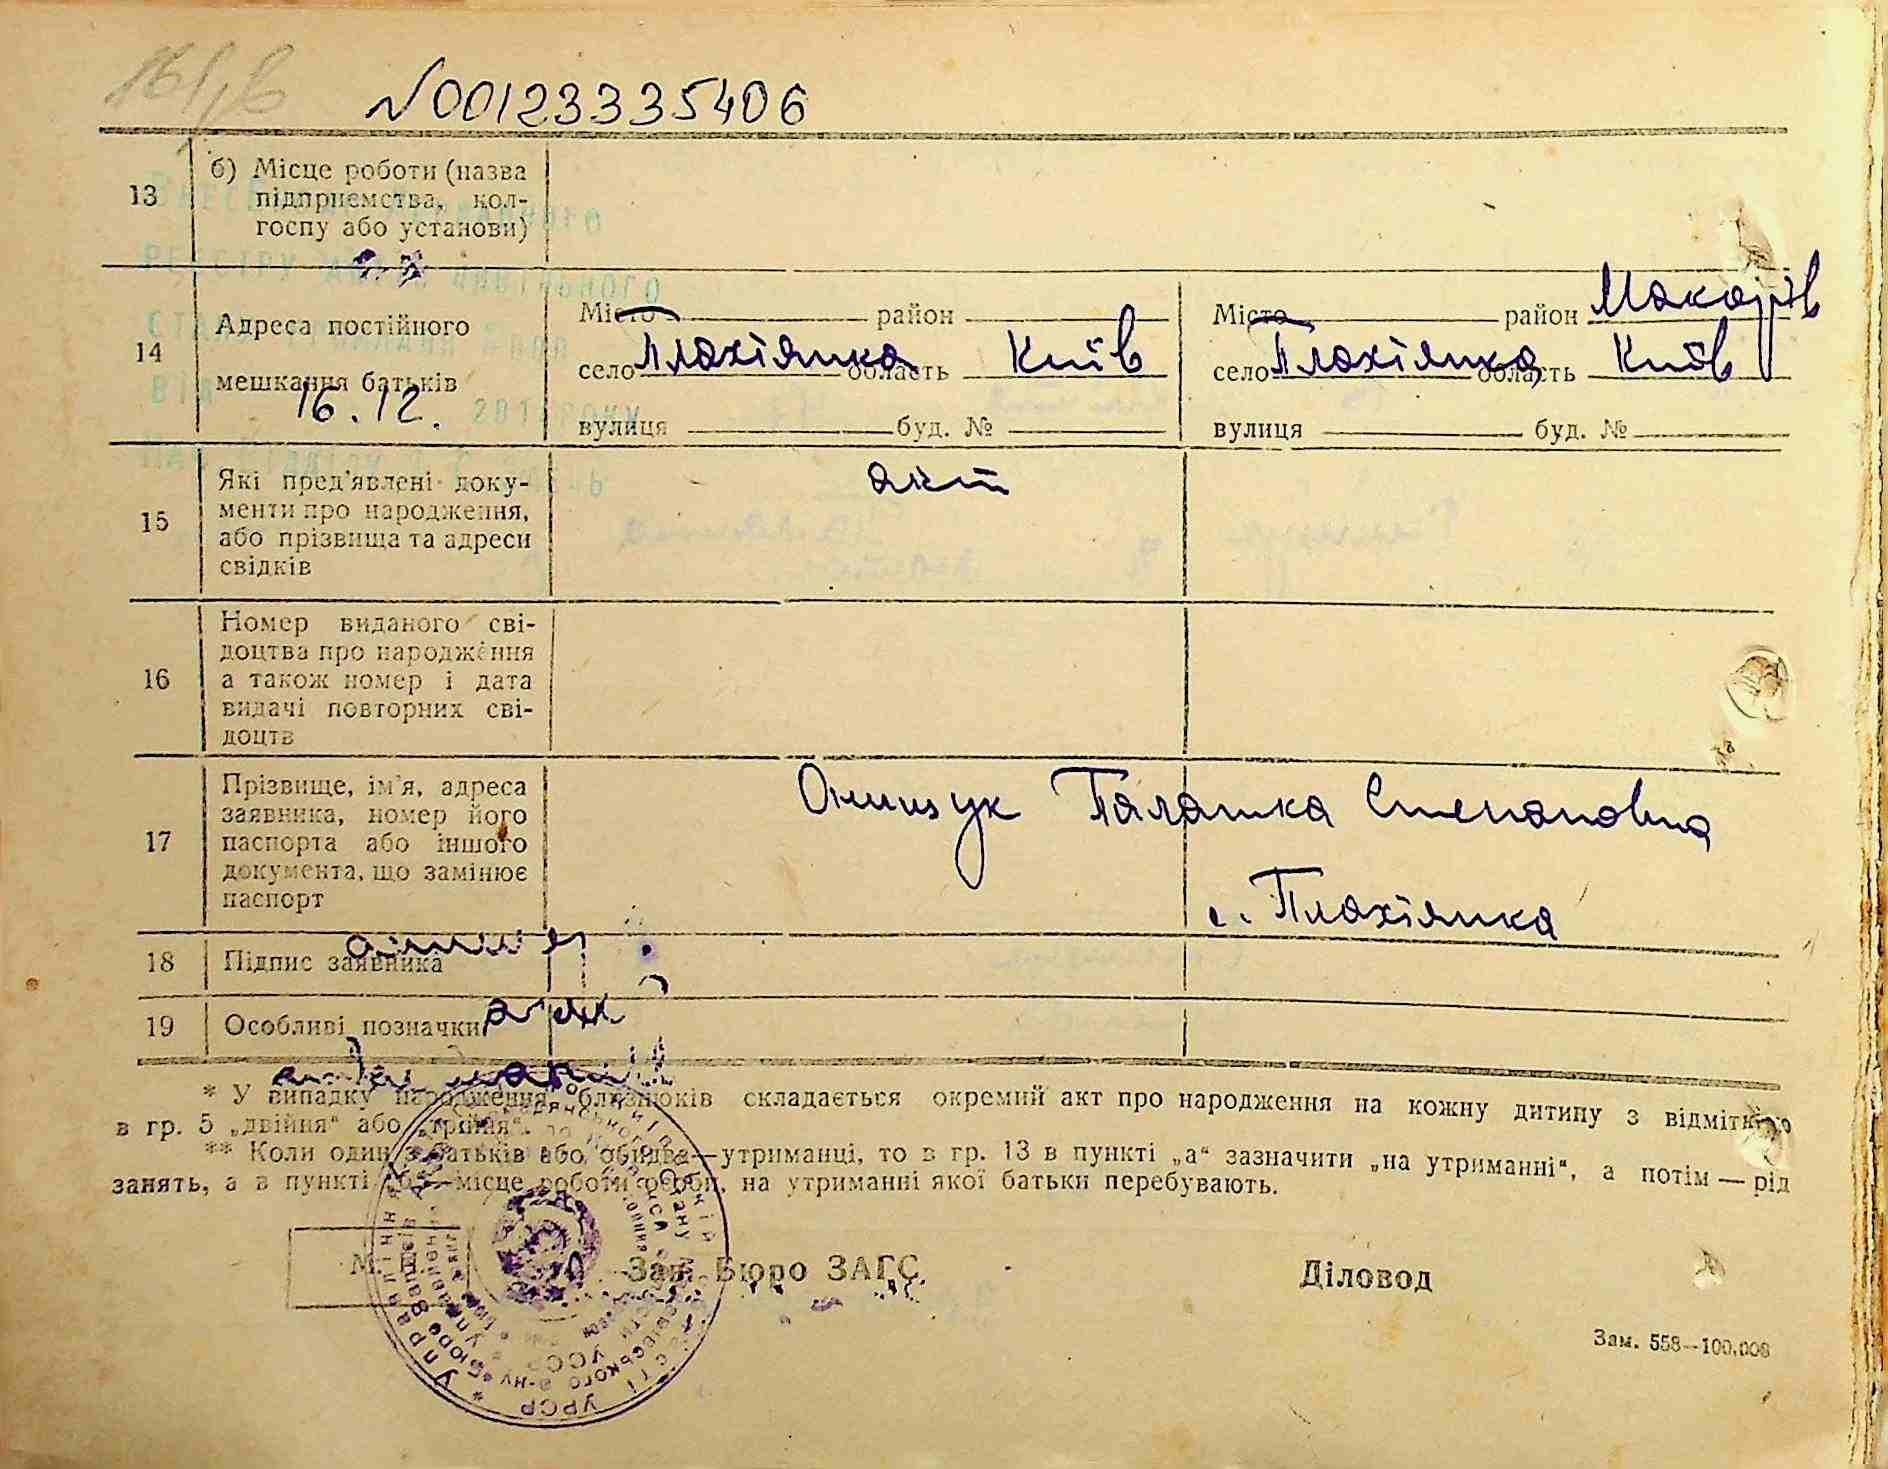 N00123335406
13 б) Місце роботи (назва
підприємства, кол-
госпу або установи)
14 Адреса постійного
мешкання батьків
16.12.
Місто район
село Плахіянка область Київ
вулиця буд. №
Місто район Макарів
село Плахіянка область Київ
вулиця буд. №
15 Які пред'явлені доку-
менти про народження,
або прізвища та адреси
свідків
акт
16 Номер виданого сві-
доцтва про народження
а також номер і дата
видачі повторних сві-
доцтв
17 Прізвище, ім'я, адреса
заявника, номер його
паспорта або іншого
документа, що замінює
паспорт
Онищук Палашка Степановна
с. Плахіянка
18 Підпис заявника
19 Особливі позначки
* У випадку народження близнюків складається окремий акт про народження на кожну дитину з відміткою
в гр. 5 „двійня“ або „трійня“.
** Коли один з батьків або обидва—утриманці, то в гр. 13 в пункті „а“ зазначити „на утриманні“, а потім — рід
занять, а в пункті „б“—місце роботи особи, на утриманні якої батьки перебувають.
М. П.
Зав. Бюро ЗАГС
Діловод
Зам. 558—100.000